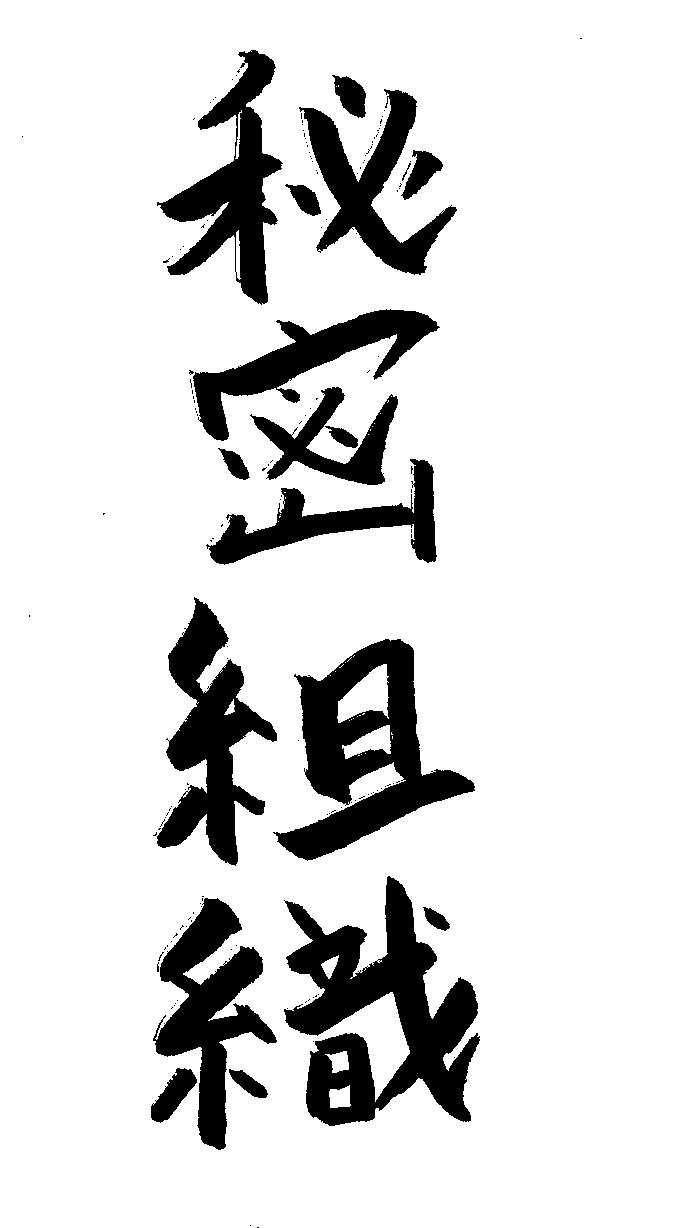 秘密組織